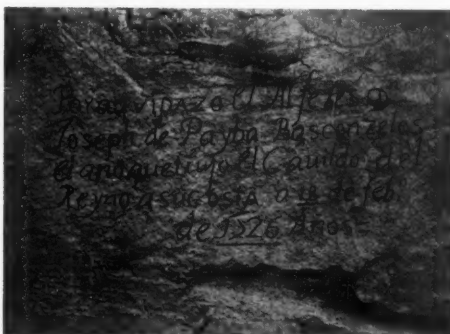 Poraq pazo el Alferes D
Joseph de Payba Basconzelos
el año que trujo el Cauildo del
Reyno a su costa a 18 de feb.
de 1726 años